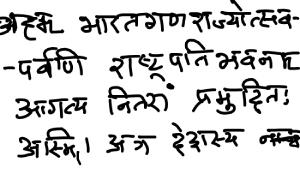 अहम् भारतगणराज्योत्सव-
-पर्वणि राष्ट्रपतिभवनम्
आगत्य नितरां प्रमुदितः
अस्मि। अत्र देशस्य